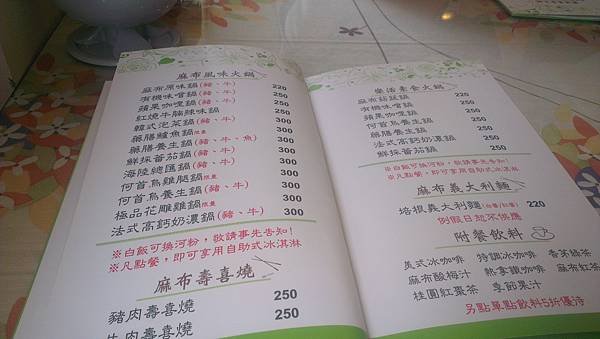 麻布風味火鍋
麻布原味鍋(豬、牛) 220
有機味噌鍋(豬、牛) 250
蘋果咖哩鍋(豬、牛) 250
紅燒牛腩辣味鍋 250
韓式泡菜鍋(豬、牛) 300
藥膳鱸魚鍋限量 300
藥膳養生鍋(豬、牛、魚) 300
鮮採番茄鍋(豬、牛) 300
海陸總匯鍋(豬、牛) 300
何首烏雞腿鍋限量 300
何首烏養生鍋(豬、牛) 300
極品花雕雞鍋限量 300
法式高鈣奶濃鍋(豬、牛) 300
※白飯可換河粉，敬請事先告知!
※凡點餐，即可享用自助式冰淇淋
麻布壽喜燒
豬肉壽喜燒 250
牛肉壽喜燒 250
樂活素食火鍋
麻布菇菇鍋 220
有機味噌鍋 250
蘋果咖哩鍋 250
何首烏養生鍋 250
藥膳養生鍋 250
法式高鈣奶濃鍋 250
鮮採番茄鍋 250
※白飯可換河粉，敬請事先告知!
※凡點餐，即可享用自助式冰淇淋
麻布義大利麵
焗烤義大利麵(白醬/紅醬) 220
例假日恕不供應
附餐飲料
美式冰咖啡 特調冰咖啡 香茅綠茶
麻布酸梅汁 熱拿鐵咖啡 麻布紅茶
桂圓紅棗茶 季節果汁
另點單點飲料5折優待